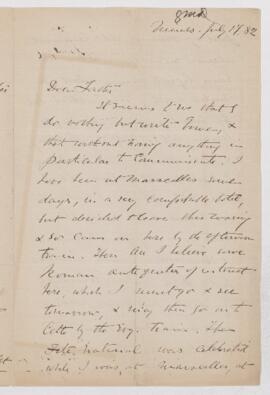 Nismes. July 17. 82
Dear Father
It seems to me that I
do nothing but write home, &
that without having anything in
particular to communicate. I
have been at Marseilles some
days, in a very comfortable hotel,
but decided to leave this
& so came on here by the afternoon
train. There are I believe some
Roman antiquities of interest
here, which I must go & see
tomorrow, & may then go on to
Cette by the train. The
Fete National was celebrated
while I was at Marseilles, at